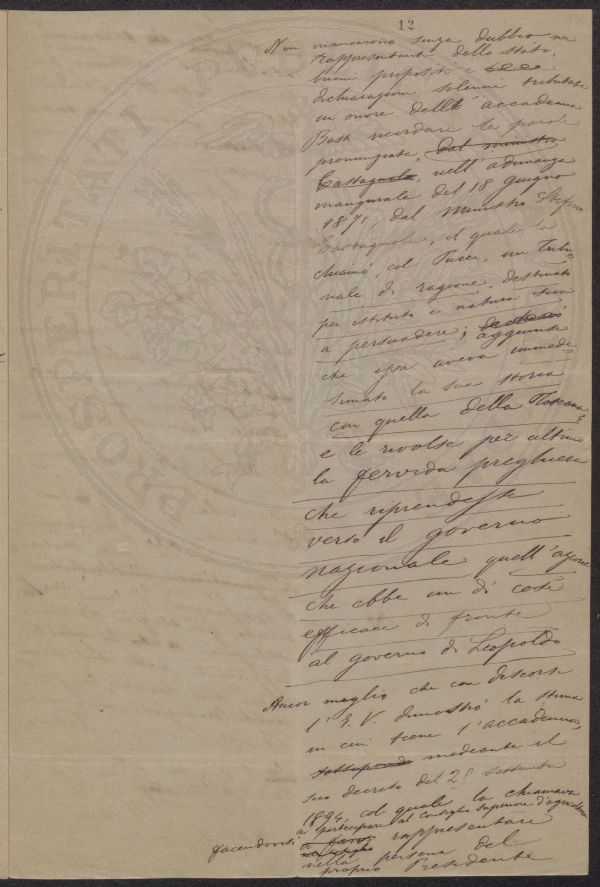 12
Non mancarono senza dubbio nei
Rappresentanti dello Stato,
buoni propositi e
dichiarazioni solenni tributate
in onore dell' accademia
Basti ricordare le parole
pronunziate, dal ministro
Castagnola, nell' adunanza
inaugurale del 18 Giugno
1871 dal Ministro Stefano
Castagnola, il quale la
chiamò, col Pucci, un Tribu-
nale di ragione, destinato
per istituto e natura sua
a persuadere; aggiunse
che essa aveva immede-
simato la sua storia
con quella della Toscana;
e le rivolse per ultimo
la fervida preghiera
che riprendesse
verso il governo
nazionale quell' azione
che ebbe un dì così
efficace di fronte
al governo di Leopoldo
Ancor meglio che con discorsi
l' E. V. dimostrò la stima
in cui tiene l' accademia,
mediante il
suo decreto del 28 settembre
1894, col quale la chiamava
a partecipare al Consiglio superiore d'agricoltura
facendovisi rappresentare
nella persona del
proprio Presidente
PROSPERITATI